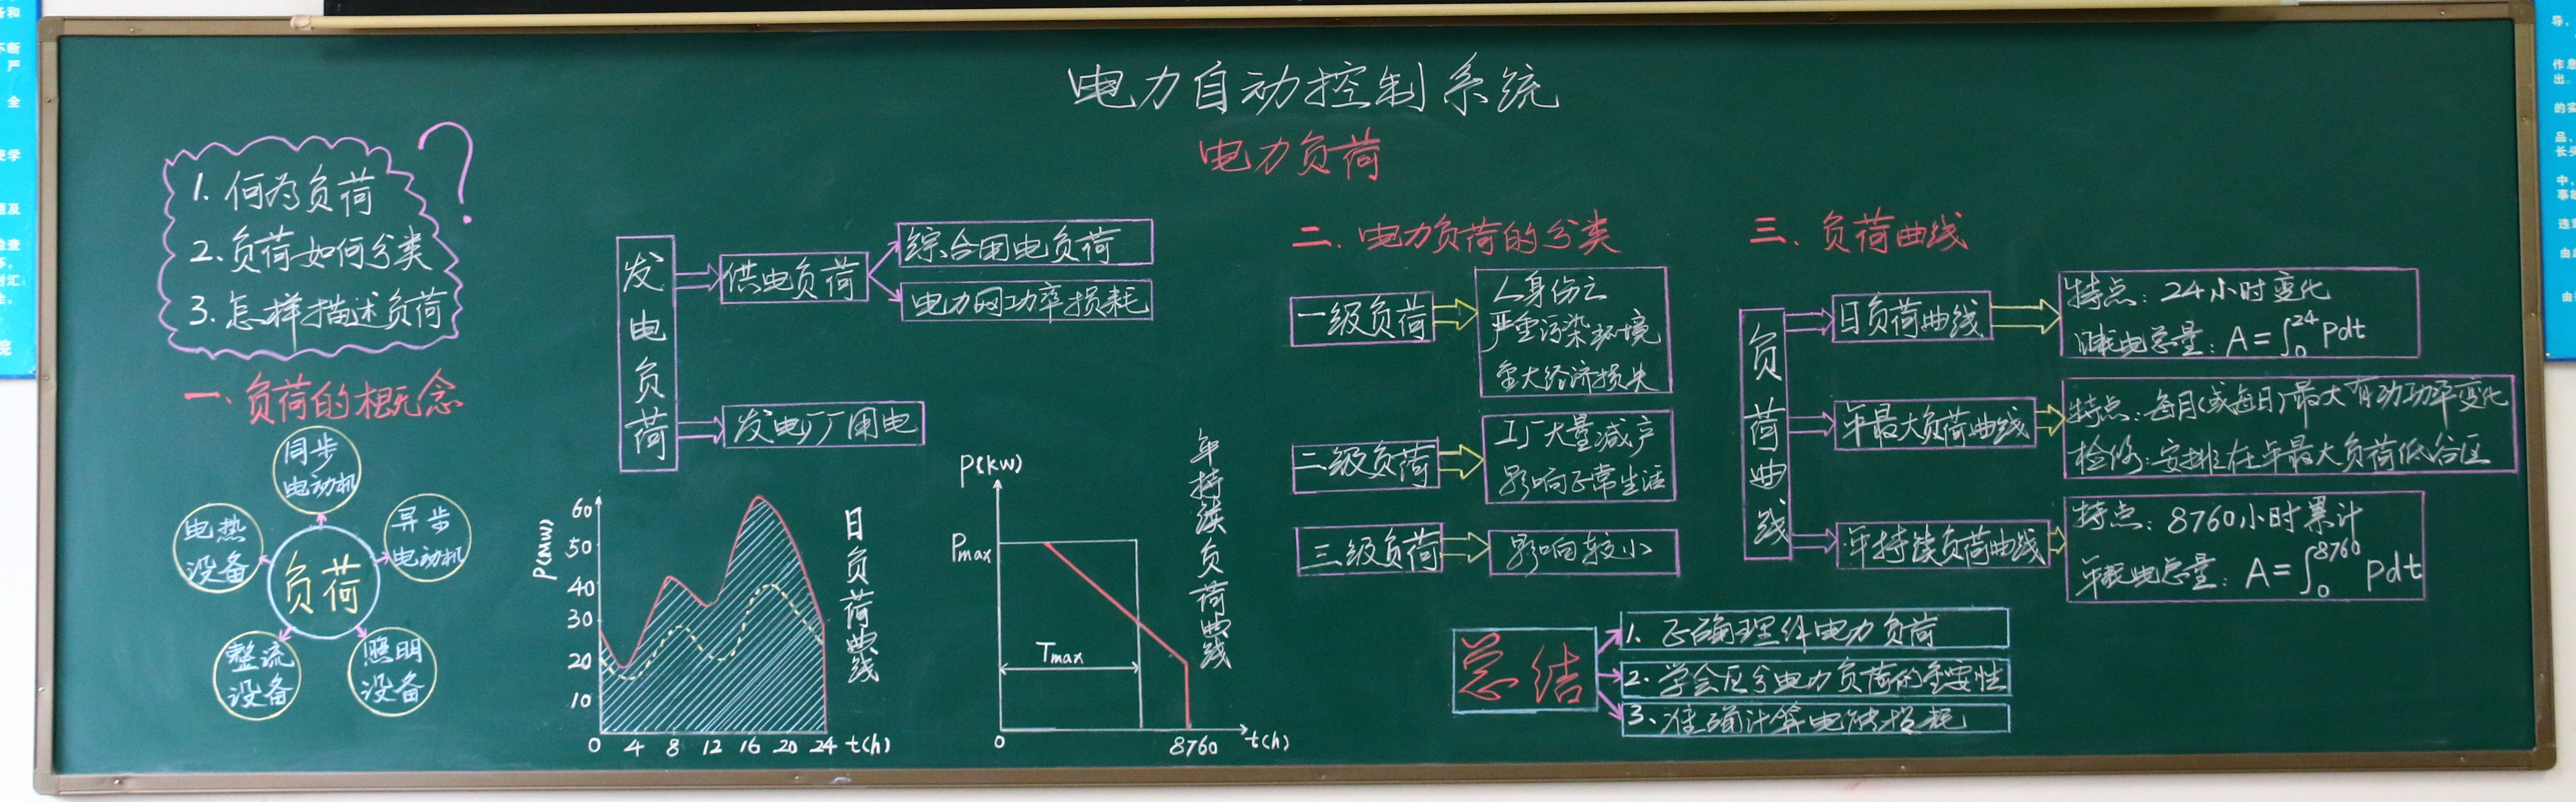 电力自动控制系统
电力负荷
1. 何为负荷
2. 负荷如何分类
3. 怎样描述负荷
?
一、负荷的概念
同步
电动机
异步
电动机
照明
设备
整流
设备
电热
设备
负荷
发电负荷
供电负荷
综合用电负荷
电力网功率损耗
发电厂厂用电
P(MW)
60
50
40
30
20
10
0 4 8 12 16 20 24 t(h)
日负荷曲线
P(kw)
Pmax
Tmax
0 8760 t(h)
年持续负荷曲线
二、电力负荷的分类
一级负荷
人身伤亡
严重污染环境
重大经济损失
二级负荷
工厂大量减产
影响正常生活
三级负荷
影响较小
三、负荷曲线
负荷曲线
日负荷曲线
特点：24小时变化
日耗电总量：A=∫₀²⁴Pdt
年最大负荷曲线
特点：每月(或每日)最大有功功率变化
检修：安排在年最大负荷低谷区
年持续负荷曲线
特点：8760小时累计
年耗电总量：A=∫₀⁸⁷⁶⁰Pdt
总结
1. 正确理解电力负荷
2. 学会区分电力负荷的重要性
3. 准确计算电能损耗